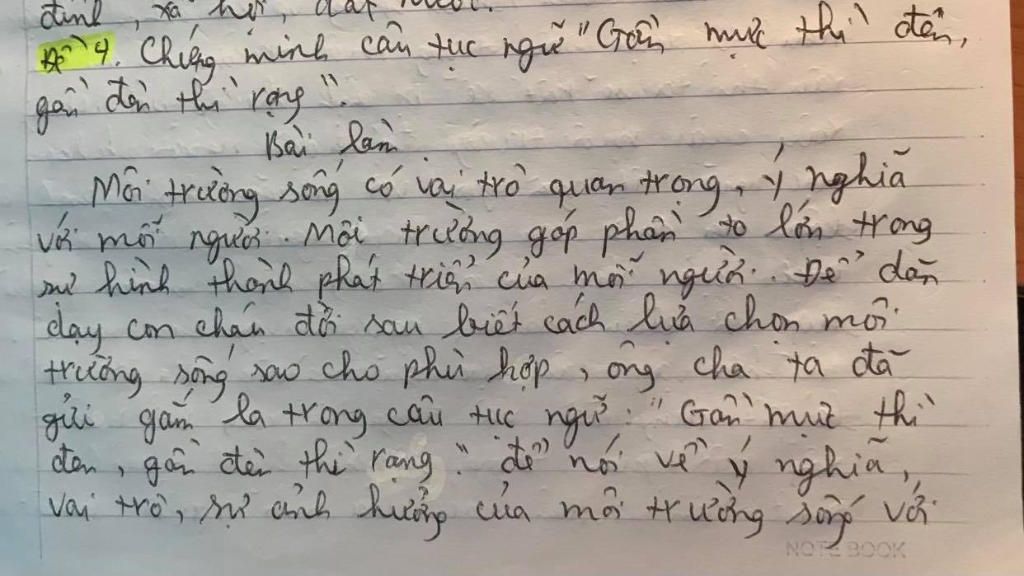 đình, xã hội, đất nước.
Đề 4. Chứng minh câu tục ngữ "Gần mực thì đen,
gần đèn thì rạng".
Bài làm
Môi trường sống có vai trò quan trọng, ý nghĩa
với mỗi người. Môi trường góp phần to lớn trong
sự hình thành phát triển của mỗi người. Để dăn
dạy con cháu đời sau biết cách lựa chọn môi
trường sống sao cho phù hợp, ông cha ta đã
gửi gắm la trong câu tục ngữ: "Gần mực thì
đen, gần đèn thì rạng." để nói về ý nghĩa,
vai trò, sự ảnh hưởng của môi trường sống với
NOTE BOOK